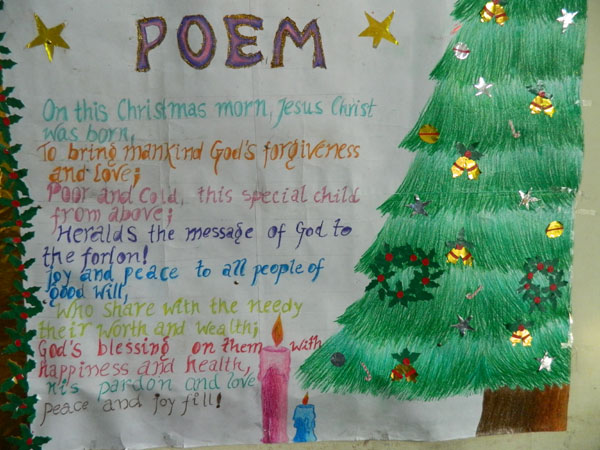 POEM
On this Christmas morn, Jesus Christ
was born,
To bring mankind God's forgiveness
and Love;
Poor and Cold, this special child
from above;
Heralds the message of God to
the forlon!
Joy and peace to all people of
Good Will,
Who share with the needy
their worth and wealth;
God's blessing on them with
happiness and health,
his pardon and love
peace and joy fill!